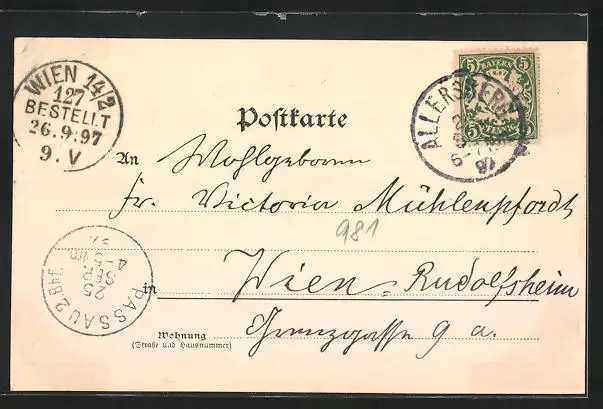 WIEN 14/2
127
BESTELLT
26.9.97
9. V
Postkarte
BAYERN
5 5
5 PFENNIG 5
ALLERSBERG
An Wohlgeboren
Fr. Victoria Mühlenpfordt
981
in Wien - Rudolfsheim
PASSAU 2 Bhf.
25
SEP
4-5 Nm.
97
Wohnung Grenzgasse 9 a.
(Straße und Hausnummer)